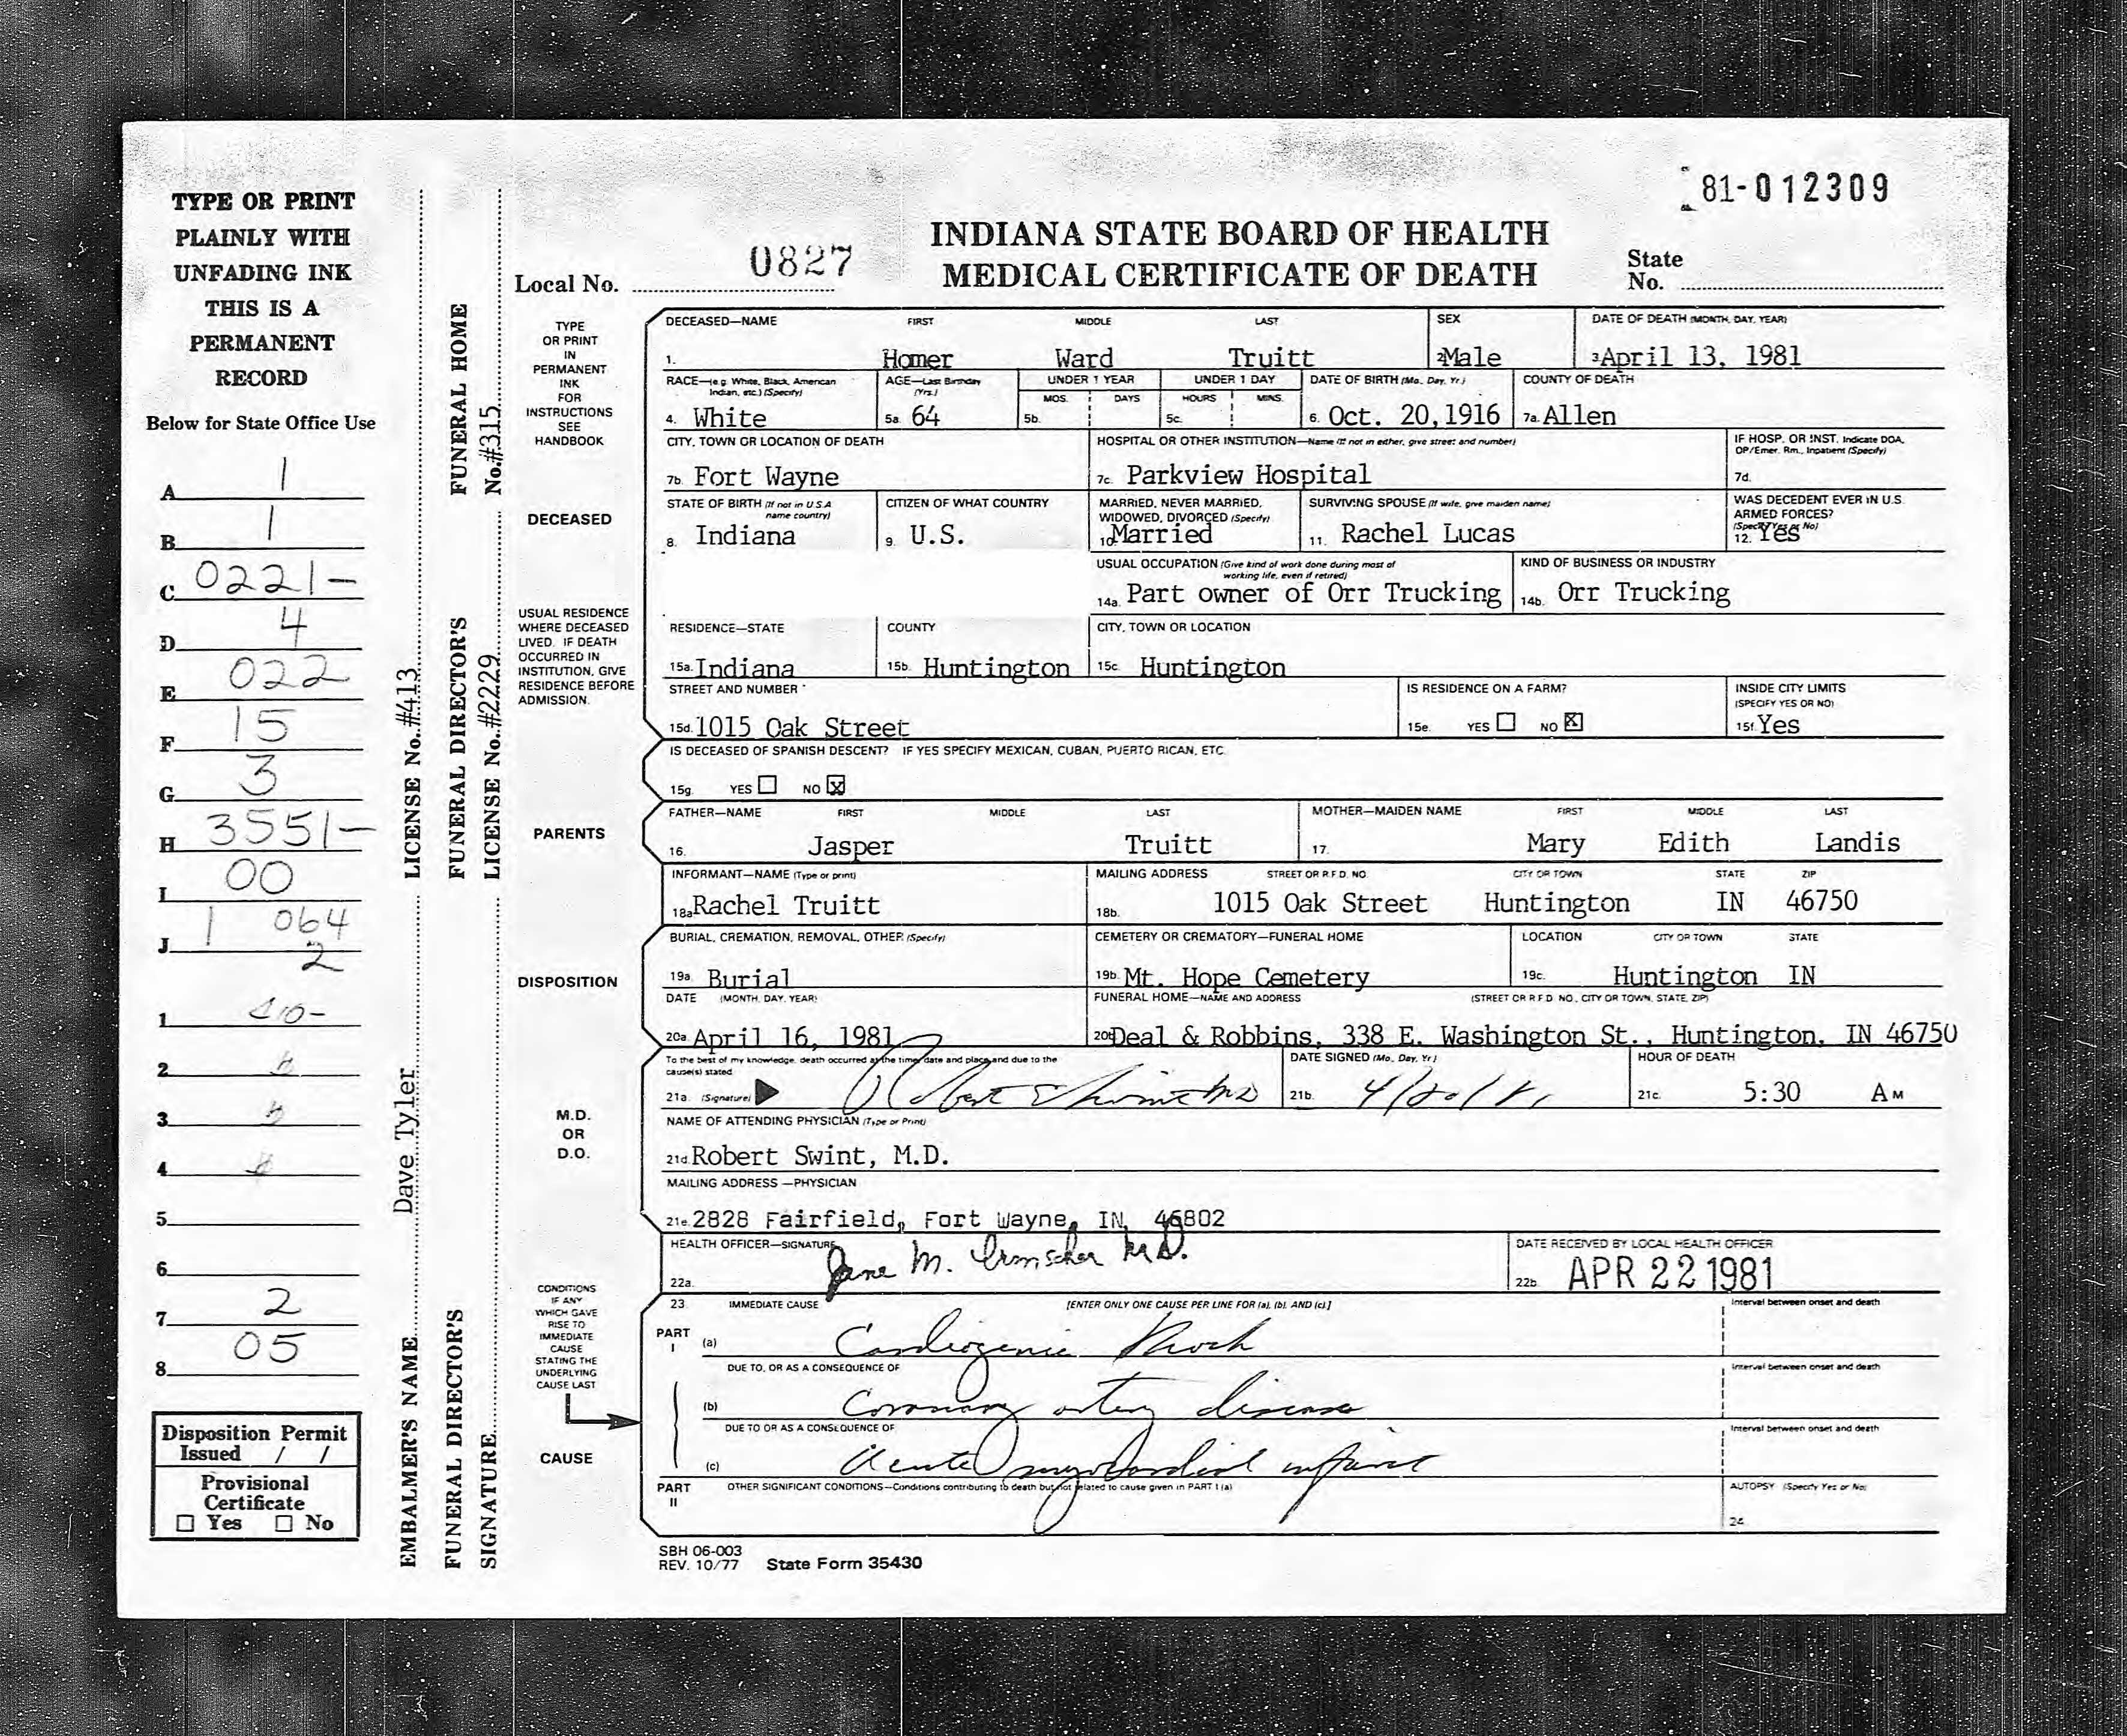 81-012309
INDIANA STATE BOARD OF HEALTH
MEDICAL CERTIFICATE OF DEATH
Local No. 0827
State
No.
TYPE OR PRINT
PLAINLY WITH
UNFADING INK
THIS IS A
PERMANENT
RECORD
Below for State Office Use
A 1
B 1
C 0221-
D 4
E 022
F 15
G 3
H 3551-
I 00
J 1 064
2
1
2
3
4
5
6
7 2
8 05
Disposition Permit
Issued / /
Provisional
Certificate
☐ Yes ☐ No
EMBALMER'S NAME Dave Tyler LICENSE No. #413
FUNERAL DIRECTOR'S FUNERAL DIRECTOR'S FUNERAL HOME
SIGNATURE LICENSE No. #2229 No. #315
TYPE
OR PRINT
IN
PERMANENT
INK
FOR
INSTRUCTIONS
SEE
HANDBOOK
DECEASED
USUAL RESIDENCE
WHERE DECEASED
LIVED. IF DEATH
OCCURRED IN
INSTITUTION, GIVE
RESIDENCE BEFORE
ADMISSION.
PARENTS
DISPOSITION
M.D.
OR
D.O.
CONDITIONS
IF ANY
WHICH GAVE
RISE TO
IMMEDIATE
CAUSE
STATING THE
UNDERLYING
CAUSE LAST
CAUSE
DECEASED—NAME FIRST MIDDLE LAST SEX DATE OF DEATH (MONTH, DAY, YEAR)
1. Homer Ward Truitt 2 Male 3 April 13, 1981
RACE—(e.g. White, Black, American Indian, etc.) (Specify) AGE—Last Birthday (Yrs.) UNDER 1 YEAR UNDER 1 DAY DATE OF BIRTH (Mo., Day, Yr.) COUNTY OF DEATH
MOS. DAYS HOURS MINS.
4. White 5a. 64 5b. 5c. 6. Oct. 20, 1916 7a. Allen
CITY, TOWN OR LOCATION OF DEATH HOSPITAL OR OTHER INSTITUTION—Name (If not in either, give street and number) IF HOSP. OR INST. Indicate DOA, OP/Emer. Rm., Inpatient (Specify)
7b. Fort Wayne 7c. Parkview Hospital 7d.
STATE OF BIRTH (If not in U.S.A. name country) CITIZEN OF WHAT COUNTRY MARRIED, NEVER MARRIED, WIDOWED, DIVORCED (Specify) SURVIVING SPOUSE (If wife, give maiden name) WAS DECEDENT EVER IN U.S. ARMED FORCES? (Specify Yes or No)
8. Indiana 9. U.S. 10 Married 11. Rachel Lucas 12. Yes
USUAL OCCUPATION (Give kind of work done during most of working life, even if retired) KIND OF BUSINESS OR INDUSTRY
14a. Part owner of Orr Trucking 14b. Orr Trucking
RESIDENCE—STATE COUNTY CITY, TOWN OR LOCATION
15a. Indiana 15b. Huntington 15c. Huntington
STREET AND NUMBER IS RESIDENCE ON A FARM? INSIDE CITY LIMITS (SPECIFY YES OR NO)
15d. 1015 Oak Street 15e. YES ☐ NO ☒ 15f. Yes
IS DECEASED OF SPANISH DESCENT? IF YES SPECIFY MEXICAN, CUBAN, PUERTO RICAN, ETC.
15g. YES ☐ NO ☒
FATHER—NAME FIRST MIDDLE LAST MOTHER—MAIDEN NAME FIRST MIDDLE LAST
16. Jasper Truitt 17. Mary Edith Landis
INFORMANT—NAME (Type or print) MAILING ADDRESS STREET OR R.F.D. NO. CITY OR TOWN STATE ZIP
18a Rachel Truitt 18b. 1015 Oak Street Huntington IN 46750
BURIAL, CREMATION, REMOVAL, OTHER (Specify) CEMETERY OR CREMATORY—FUNERAL HOME LOCATION CITY OR TOWN STATE
19a. Burial 19b. Mt. Hope Cemetery 19c. Huntington IN
DATE (MONTH, DAY, YEAR) FUNERAL HOME—NAME AND ADDRESS (STREET OR R.F.D. NO., CITY OR TOWN, STATE, ZIP)
20a. April 16, 1981 20b Deal & Robbins, 338 E. Washington St., Huntington, IN 46750
To the best of my knowledge, death occurred at the time, date and place and due to the cause(s) stated DATE SIGNED (Mo., Day, Yr.) HOUR OF DEATH
21a. (Signature) Robert Swint MD 21b. 4/20/81 21c. 5:30 A M
NAME OF ATTENDING PHYSICIAN (Type or Print)
21d. Robert Swint, M.D.
MAILING ADDRESS—PHYSICIAN
21e. 2828 Fairfield, Fort Wayne, IN, 46802
HEALTH OFFICER—SIGNATURE DATE RECEIVED BY LOCAL HEALTH OFFICER
22a. Jane M. Irmscher M.D. 22b. APR 22 1981
23. IMMEDIATE CAUSE [ENTER ONLY ONE CAUSE PER LINE FOR (a), (b), AND (c).] Interval between onset and death
PART I (a) Cardiogenic Shock
DUE TO, OR AS A CONSEQUENCE OF Interval between onset and death
(b) Coronary artery disease
DUE TO OR AS A CONSEQUENCE OF Interval between onset and death
(c) Acute myocardial infarct
PART II OTHER SIGNIFICANT CONDITIONS—Conditions contributing to death but not related to cause given in PART I (a) AUTOPSY (Specify Yes or No)
24.
SBH 06-003
REV. 10/77 State Form 35430